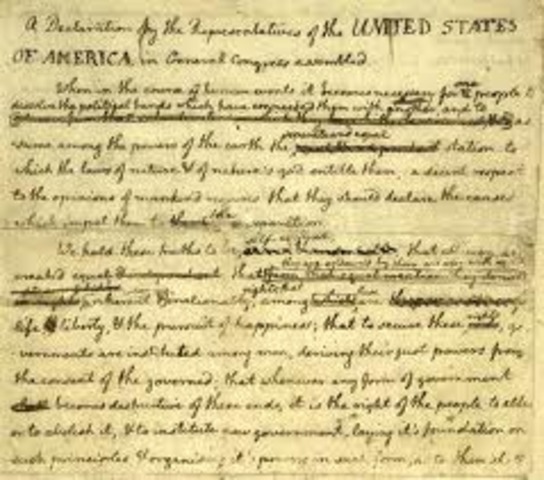 A Declaration by the Representatives of the UNITED STATES
OF AMERICA, in General Congress assembled.
When in the course of human events it becomes necessary for one people to
dissolve the political bands which have connected them with another, and to
as
sume among the powers of the earth the separate and equal station to
which the laws of nature & of nature's god entitle them, a decent respect
to the opinions of mankind requires that they should declare the causes
which impel them to the separation.
We hold these truths to be self-evident that all men are
created equal that
inherent & inalienable, among which are
life, & liberty, & the pursuit of happiness; that to secure these rights, go
vernments are instituted among men, deriving their just powers from
the consent of the governed; that whenever any form of government
becomes destructive of these ends, it is the right of the people to alter
or to abolish it, & to institute new government, laying it's foundation on
such principles & organising it's powers in such form, as to them shall